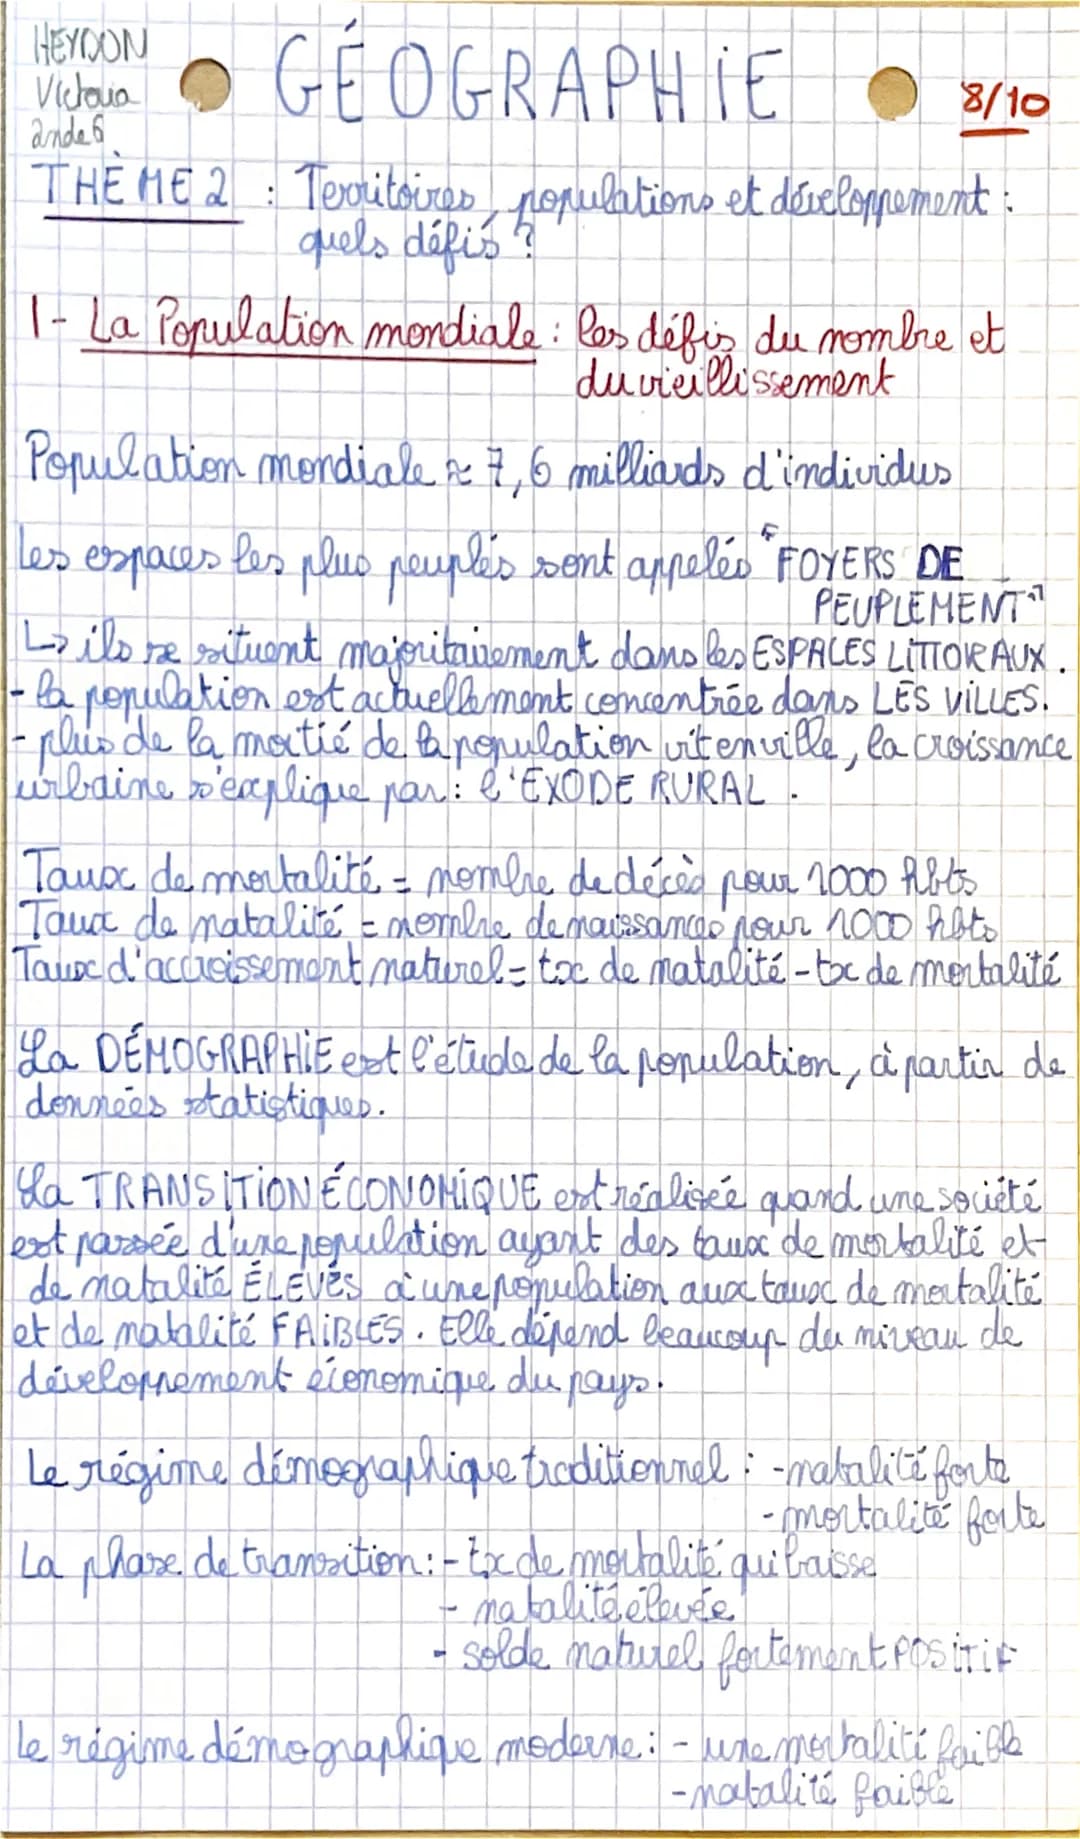 HEYDON
Victoria
2nde 6
GÉOGRAPHiE
8/10
THÈME 2 : Territoires, populations et développement :
quels défis ?
1- La Population mondiale : les défis du nombre et
du vieillissement
Population mondiale ≈ 7,6 milliards d'individus
Les espaces les plus peuplés sont appelés "FOYERS DE
PEUPLEMENT"
↳ ils se situent majoritairement dans les ESPACES LiTTORAUX.
- la population est actuellement concentrée dans LES ViLLES.
- plus de la moitié de la population vit en ville, la croissance
urbaine s'explique par : l'EXODE RURAL.
Taux de mortalité = nombre de décès pour 1000 hbts
Taux de natalité = nombre de naissances pour 1000 hbts
Taux d'accroissement naturel = tx de natalité - tx de mortalité
La DÉMOGRAPHiE est l'étude de la population, à partir de
données statistiques.
La TRANSiTiON ÉCONOMiQUE est réalisée quand une société
est passée d'une population ayant des taux de mortalité et
de natalité ÉLEVÉS à une population aux taux de mortalité
et de natalité FAiBLES. Elle dépend beaucoup du niveau de
développement économique du pays.
Le régime démographique traditionnel : - natalité forte
- mortalité forte
La phase de transition : - tx de mortalité qui baisse
- natalité élevée
- solde naturel fortement POSiTiF
Le régime démographique moderne : - une mortalité faible
- natalité faible